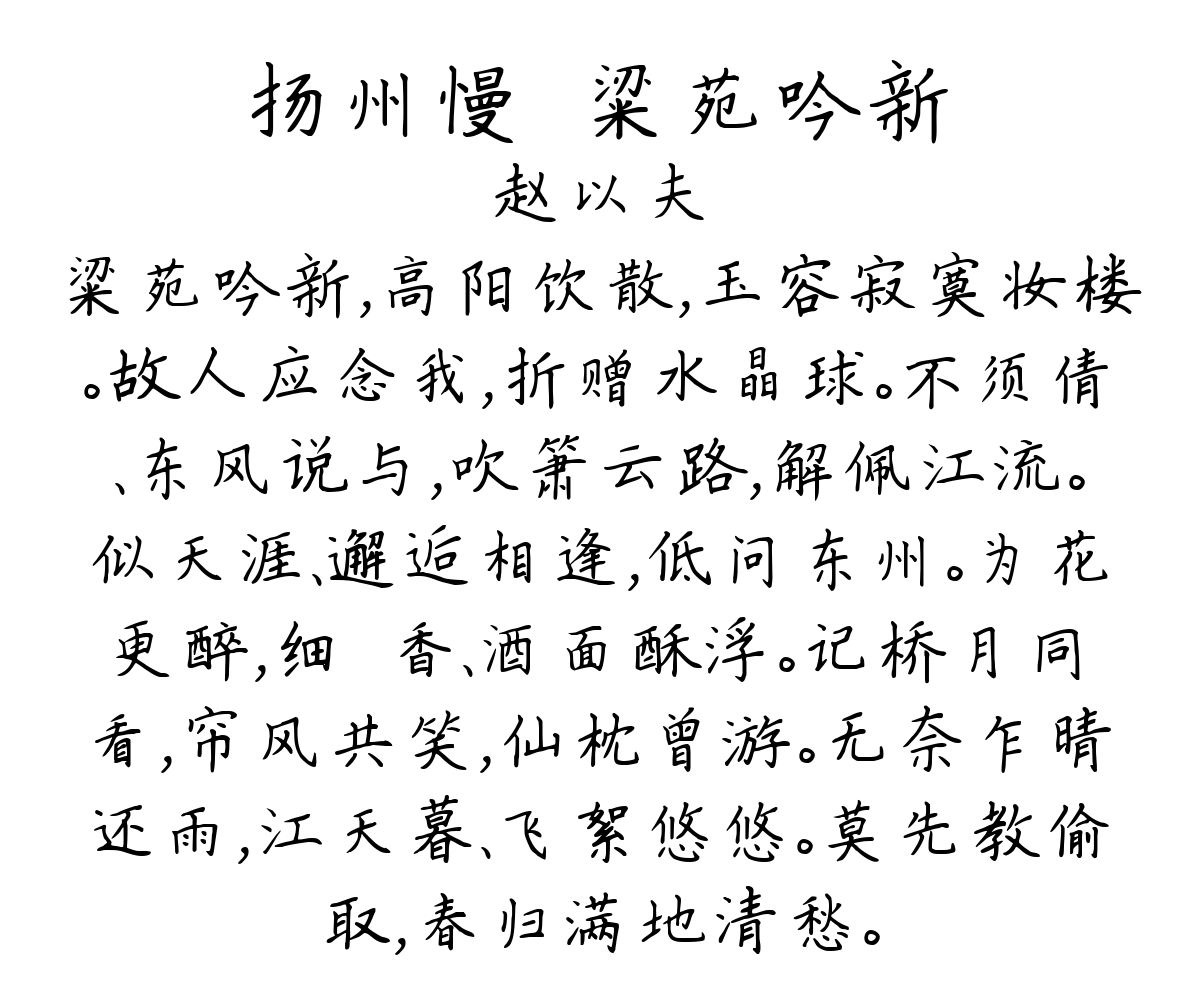 扬州慢 粱苑吟新
赵以夫
粱苑吟新,高阳饮散,玉容寂寞妆楼
。故人应念我,折赠水晶球。不须倩
、东风说与,吹箫云路,解佩江流。
似天涯、邂逅相逢,低问东州。为花
更醉,细 香、酒面酥浮。记桥月同
看,帘风共笑,仙枕曾游。无奈乍晴
还雨,江天暮、飞絮悠悠。莫先教偷
取,春归满地清愁。